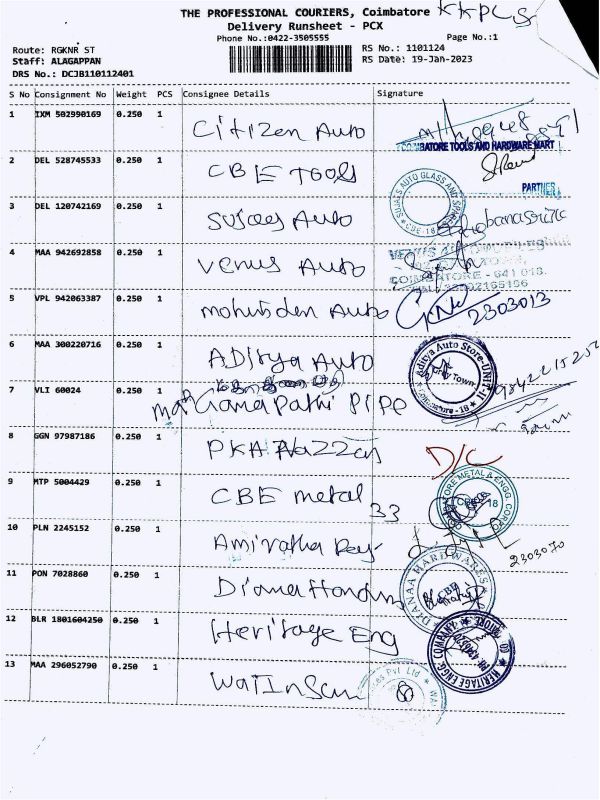 THE PROFESSIONAL COURIERS, Coimbatore KKPCS
Delivery Runsheet - PCX
Phone No.:0422-3505555 Page No.:1
Route: RGKNR ST RS No.: 1101124
Staff: ALAGAPPAN RS Date: 19-Jan-2023
DRS No.: DCJB110112401
S No Consignment No Weight PCS Consignee Details Signature
1 IXM 502990169 0.250 1 Citizen Auto
COIMBATORE TOOLS AND HARDWARE MART
2 DEL 528745533 0.250 1 CBE Tools
PARTNER
3 DEL 120742169 0.250 1 Sujaes Auto SUJAES AUTO GLASS AND CBE-18
4 MAA 942692858 0.250 1 Venus Auto VENUS AUTOMOBILES
COIMBATORE - 641 018.
5 VPL 942063387 0.250 1 Auto 2303013
6 MAA 300220716 0.250 1 ADitya Auto Aditya Auto Store-UNIT-II Town
7 VLI 60024 0.250 1 Ganapathi PIPE
8 GGN 97987186 0.250 1 PKA D/C
9 MTP 5004429 0.250 1 CBE metal 33 METAL & ENGG. CORPO 18
10 PLN 2245152 0.250 1 Amiratha 2303070
11 PON 7028860 0.250 1 Diana DIANAA HARDWARES CBE
12 BLR 1801604250 0.250 1 Heritage Eng HERITAGE ENGG. COMPANY
13 MAA 296052790 0.250 1 Pvt Ltd